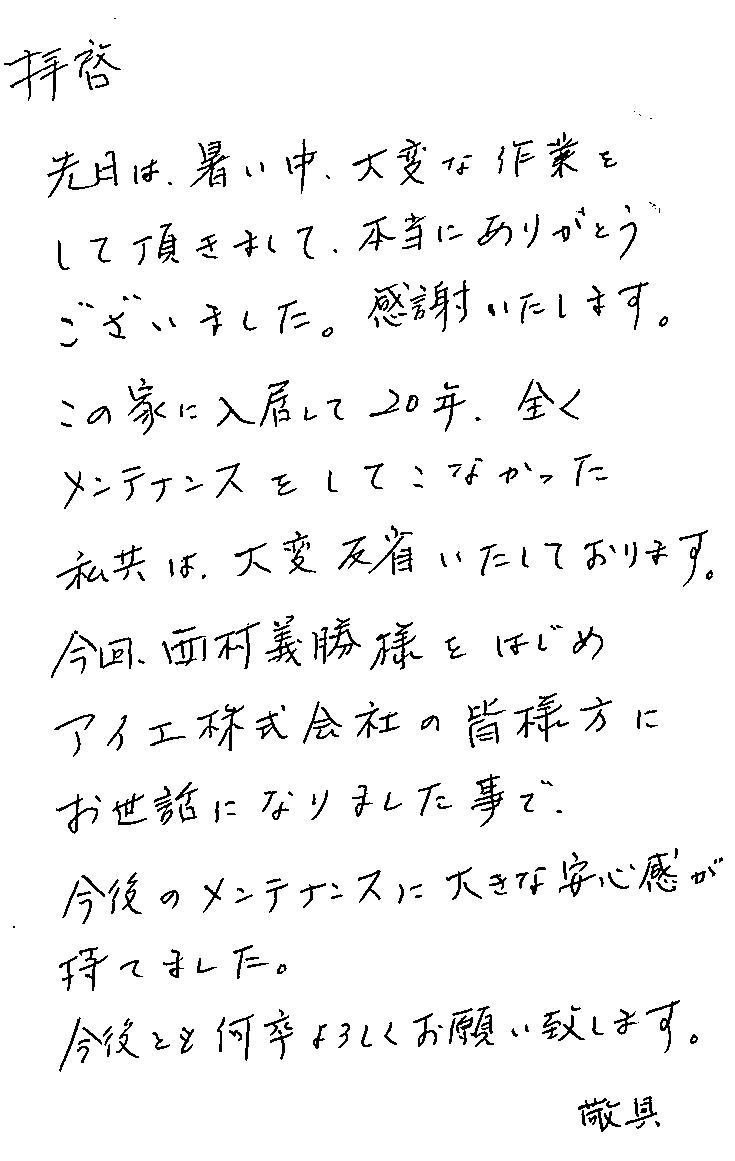 拝啓
先日は、暑い中、大変な作業を
して頂きまして、本当にありがとう
ございました。感謝いたします。
この家に入居して20年、全く
メンテナンスをしてこなかった
私共は、大変反省いたしております。
今回、西村義勝様をはじめ
アイエ株式会社の皆様方に
お世話になりました事で、
今後のメンテナンスに大きな安心感が
持てました。
今後とも何卒よろしくお願い致します。
敬具